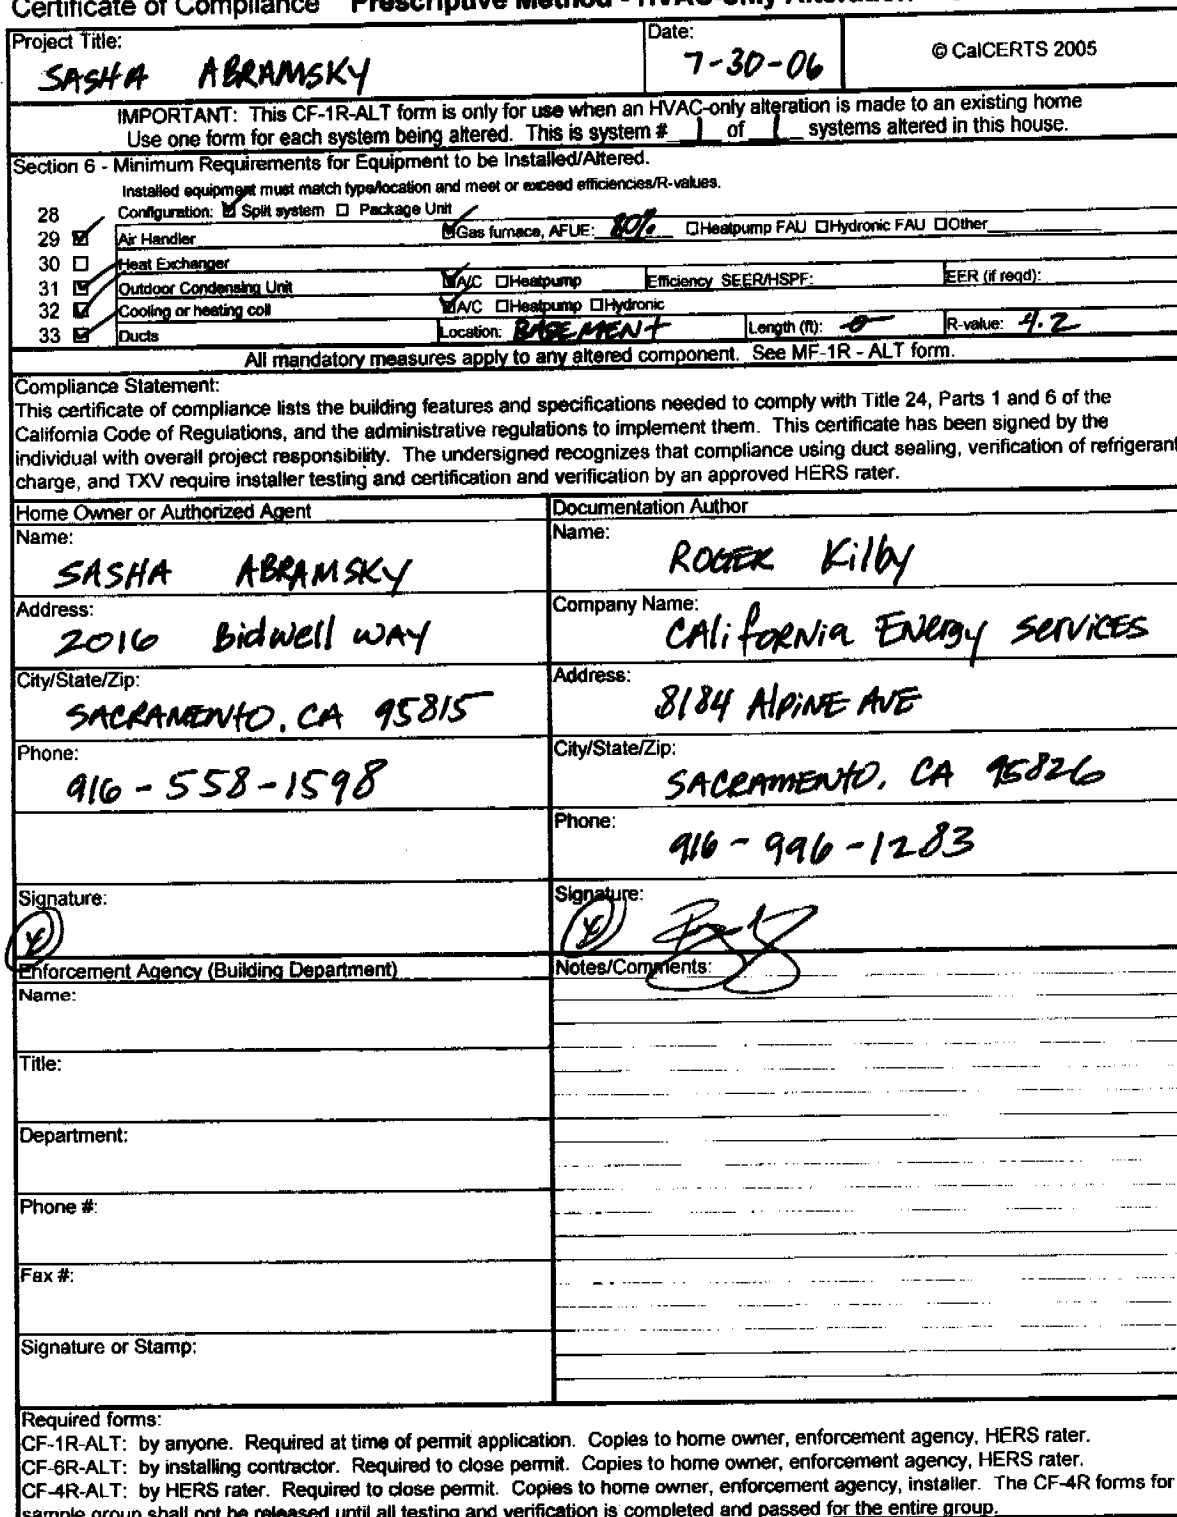 Certificate of Compliance Prescriptive Method - HVAC-only Alteration
Project Title:
SASHA ABRAMSKY
Date:
7-30-06
© CalCERTS 2005
IMPORTANT: This CF-1R-ALT form is only for use when an HVAC-only alteration is made to an existing home
Use one form for each system being altered. This is system # 1 of 1 systems altered in this house.
Section 6 - Minimum Requirements for Equipment to be Installed/Altered.
Installed equipment must match type/location and meet or exceed efficiencies/R-values.
28 Configuration: ☑ Split system ☐ Package Unit
29 ☑ Air Handler ☑ Gas furnace, AFUE: 80% ☐ Heatpump FAU ☐ Hydronic FAU ☐ Other
30 ☐ Heat Exchanger
31 ☑ Outdoor Condensing Unit ☑ A/C ☐ Heatpump Efficiency SEER/HSPF: EER (if reqd):
32 ☑ Cooling or heating coil ☑ A/C ☐ Heatpump ☐ Hydronic
33 ☑ Ducts Location: BASEMENT Length (ft): 0 R-value: 4.2
All mandatory measures apply to any altered component. See MF-1R - ALT form.
Compliance Statement:
This certificate of compliance lists the building features and specifications needed to comply with Title 24, Parts 1 and 6 of the
California Code of Regulations, and the administrative regulations to implement them. This certificate has been signed by the
individual with overall project responsibility. The undersigned recognizes that compliance using duct sealing, verification of refrigerant
charge, and TXV require installer testing and certification and verification by an approved HERS rater.
Home Owner or Authorized Agent
Name:
SASHA ABRAMSKY
Address:
2016 Bidwell WAY
City/State/Zip:
SACRAMENTO, CA 95815
Phone:
916-558-1598
Signature:
Documentation Author
Name:
ROGER Kilby
Company Name:
CAliforNia ENergy SERVICES
Address:
8184 AlPiNE AVE
City/State/Zip:
SACRAMENTO, CA 95826
Phone:
916-996-1283
Signature:
Enforcement Agency (Building Department)
Name:
Title:
Department:
Phone #:
Fax #:
Signature or Stamp:
Notes/Comments:
Required forms:
CF-1R-ALT: by anyone. Required at time of permit application. Copies to home owner, enforcement agency, HERS rater.
CF-6R-ALT: by installing contractor. Required to close permit. Copies to home owner, enforcement agency, HERS rater.
CF-4R-ALT: by HERS rater. Required to close permit. Copies to home owner, enforcement agency, installer. The CF-4R forms for
sample group shall not be released until all testing and verification is completed and passed for the entire group.